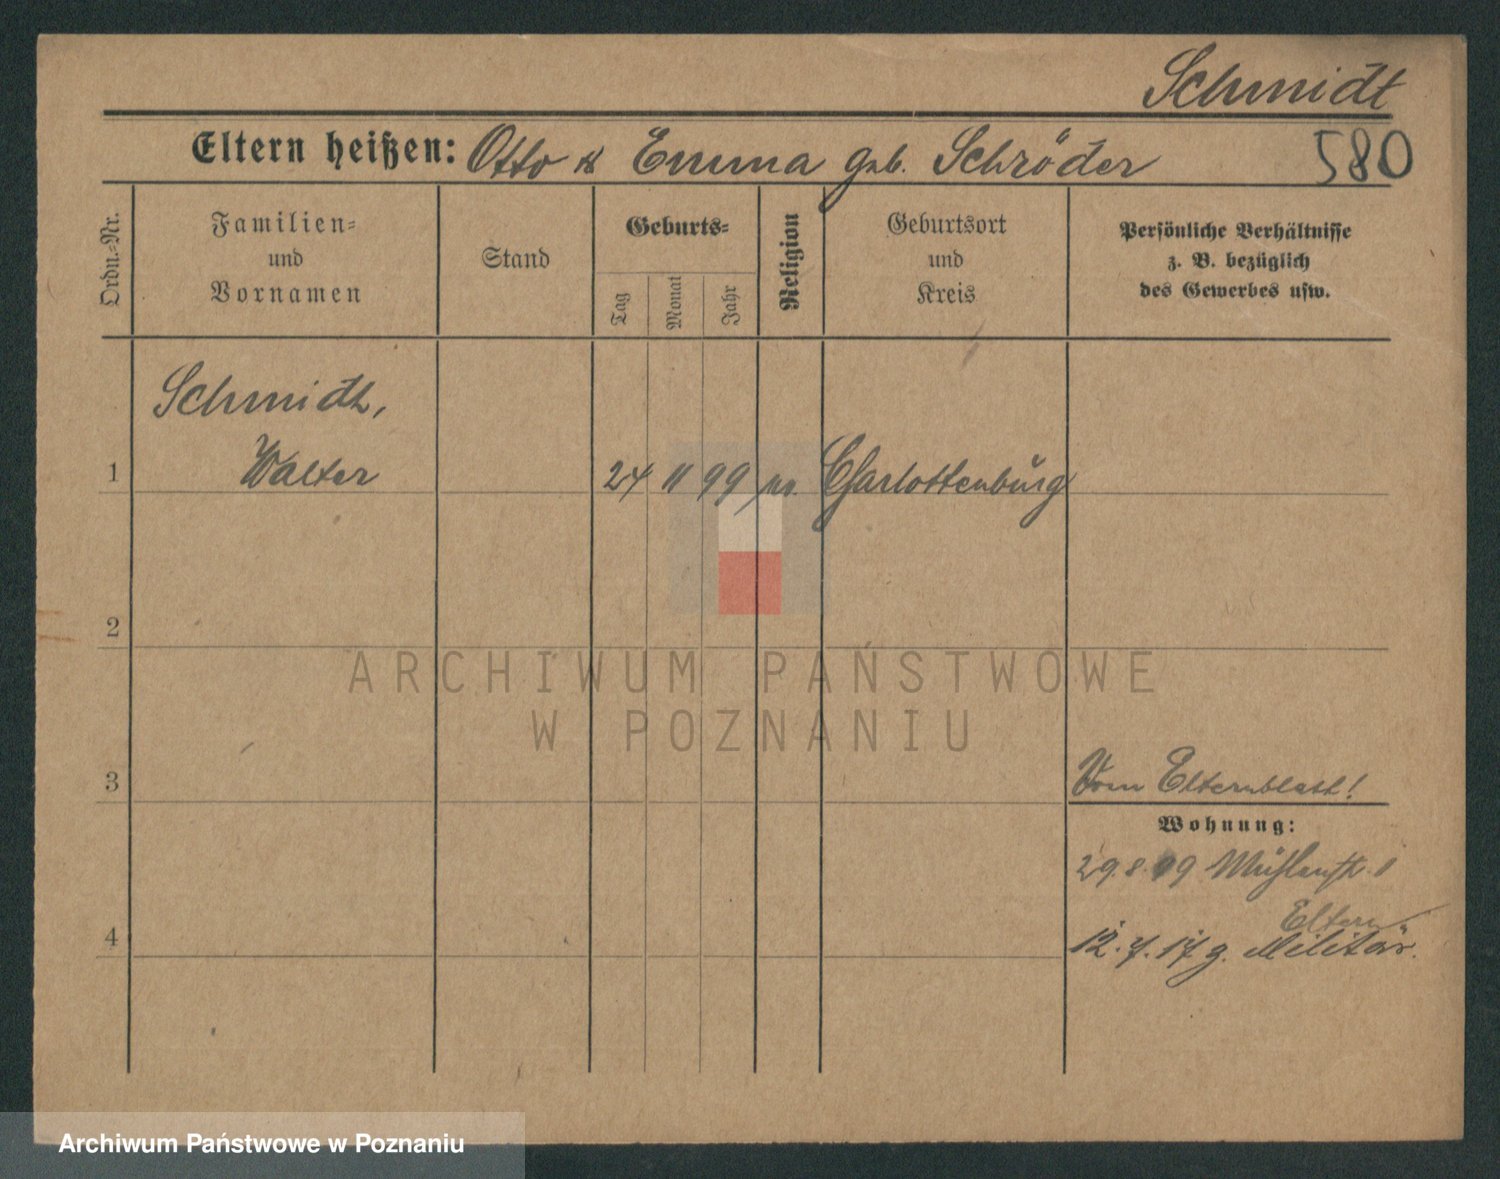 Schmidt
Eltern heißen: Otto & Emma geb. Schröder
580
Ordn.-Nr.
Familien-
und
Vornamen
Stand
Geburts-
Tag
Monat
Jahr
Religion
Geburtsort
und
Kreis
Persönliche Verhältnisse
z. B. bezüglich
des Gewerbes usw.
Schmidt,
1 Walter 24 11 99 Charlottenburg
2
3
Vom Elternblatt!
Wohnung:
29.8.99 Mühlenstr. 1
Eltern
4
12.7.17 z. Militär.
ARCHIWUM PAŃSTWOWE
W POZNANIU
Archiwum Państwowe w Poznaniu